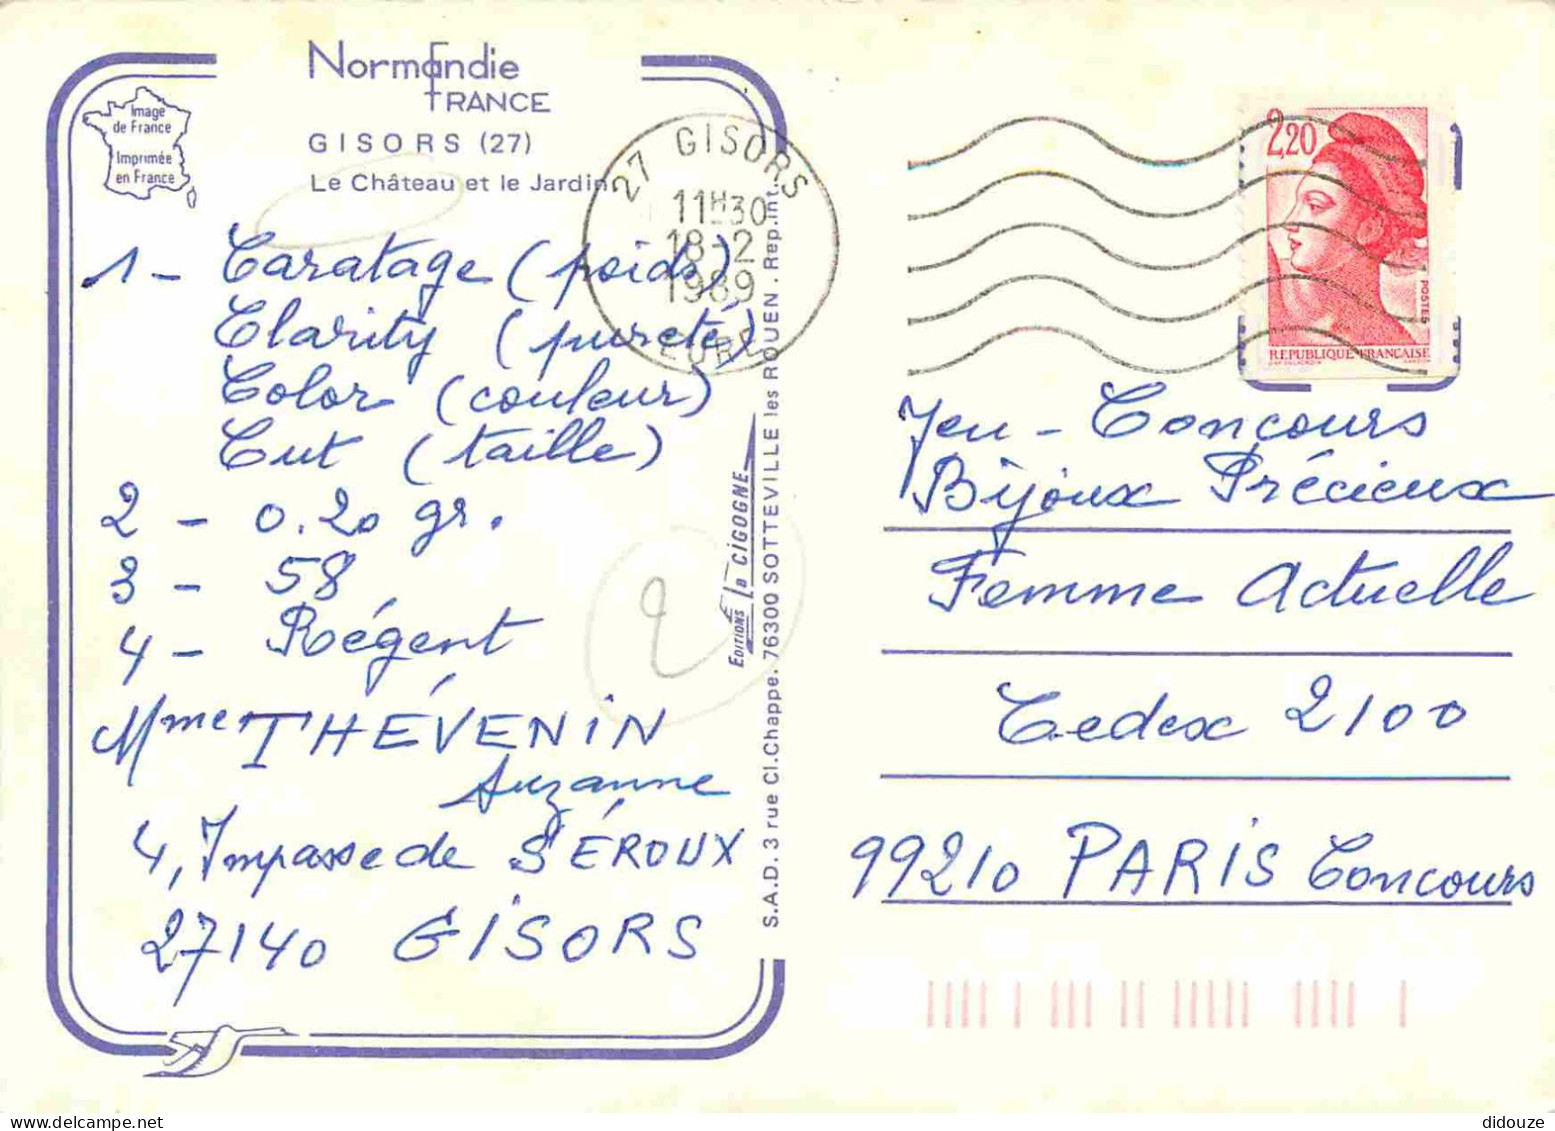 Normandie
FRANCE
GISORS (27)
Le Château et le Jardin
Image
de France
Imprimée
en France
1 - Caratage (poids)
Clarity (pureté)
Color (couleur)
Cut (taille)
2 - 0.20 gr.
3 - 58
4 - Régent
Mme THÉVENIN
Suzanne
4, Impasse de SÉROUX
27140 GISORS
2
EDITIONS la CIGOGNE
S.A.D. 3 rue Cl.Chappe. 76300 SOTTEVILLE les ROUEN . Rep.int.
27 GISORS
11H30
18-2
1989
EURE
2,20
POSTES
REPUBLIQUE FRANÇAISE
Jeu - Concours
Bijoux Précieux
Femme Actuelle
Cedex 2100
99210 PARIS Concours
didouze